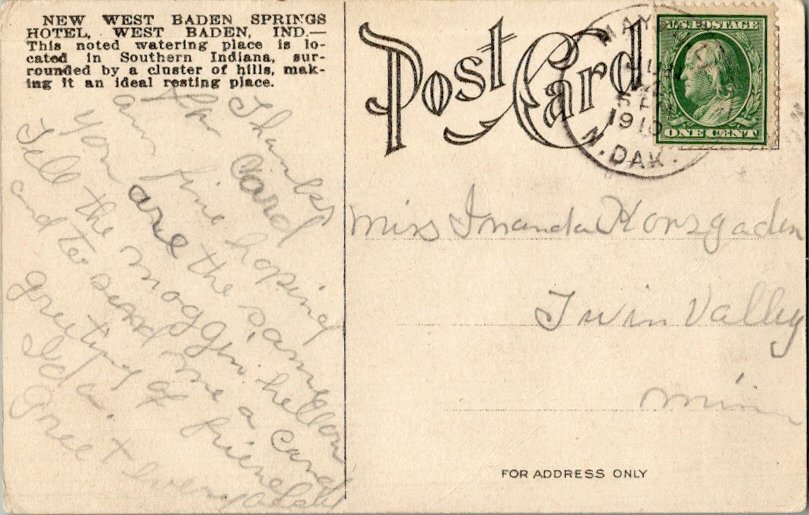 NEW WEST BADEN SPRINGS
HOTEL, WEST BADEN, IND.—
This noted watering place is lo-
cated in Southern Indiana, sur-
rounded by a cluster of hills, mak-
ing it an ideal resting place.
Thanks
for card
am fine hoping
you are the same
Tell the moggin hellow
and to send me a card
greeting of friend
Ida.
Greet everybody
Post Card
MAY
1910
N. DAK.
U.S. POSTAGE
ONE CENT
Miss Inanda Korsgaden
Twin Valley
Minn
FOR ADDRESS ONLY